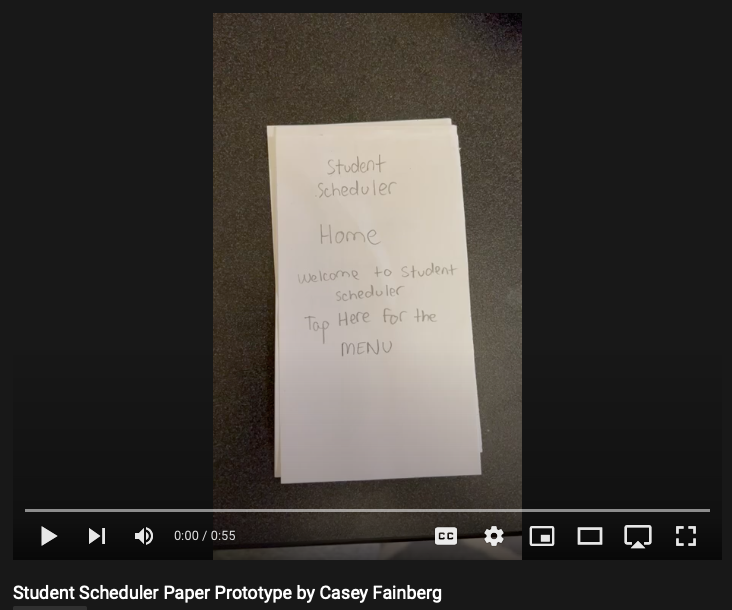 Student
Scheduler
Home
Welcome to Student
scheduler
Tap Here for the
MENU
0:00 / 0:55
CC
Student Scheduler Paper Prototype by Casey Fainberg